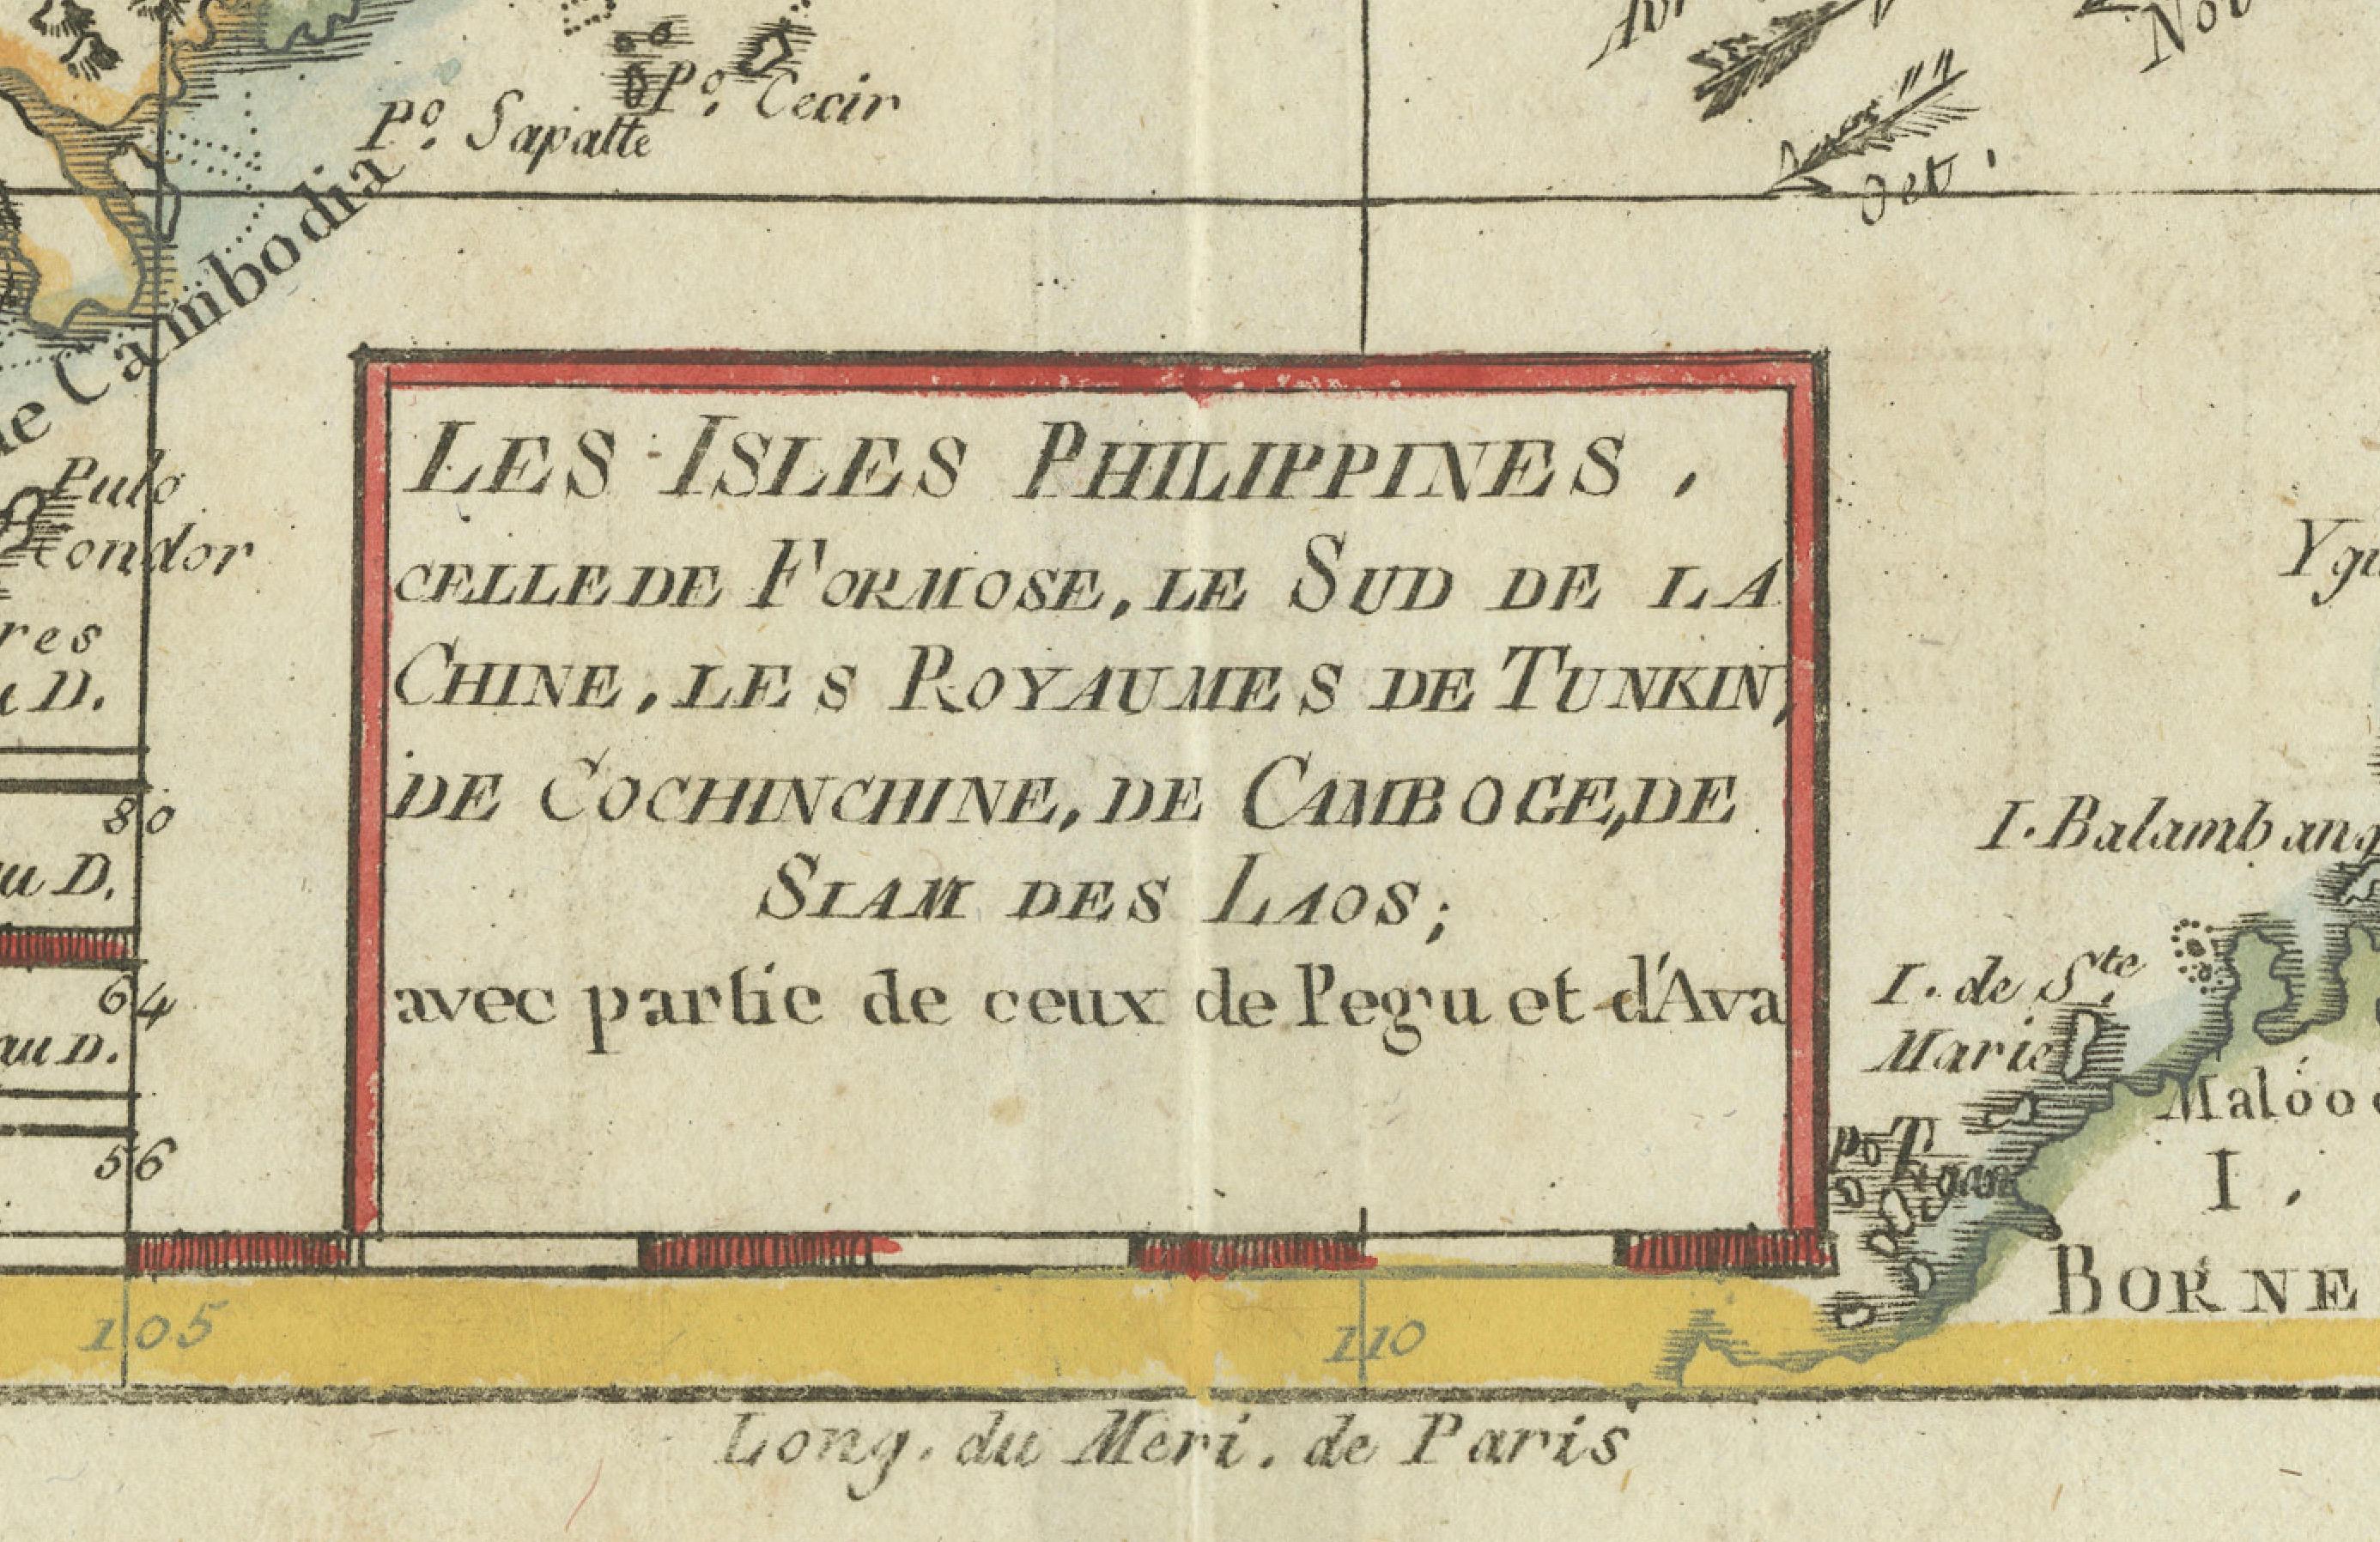 Nov
Oct.
Po. Cecir
Po. Sapatte
de Cambodia
Pulo
Condor
res
u D.
80
au D.
64
au D.
56
LES ISLES PHILIPPINES,
CELLE DE FORMOSE, LE SUD DE LA
CHINE, LES ROYAUMES DE TUNKIN,
DE COCHINCHINE, DE CAMBOGE, DE
SIAM DES LAOS;
avec partie de ceux de Pegu et d'Ava
I. Balambang
I. de Ste.
Marie
Maloo
I.
BORNE
105
110
Long. du Meri. de Paris